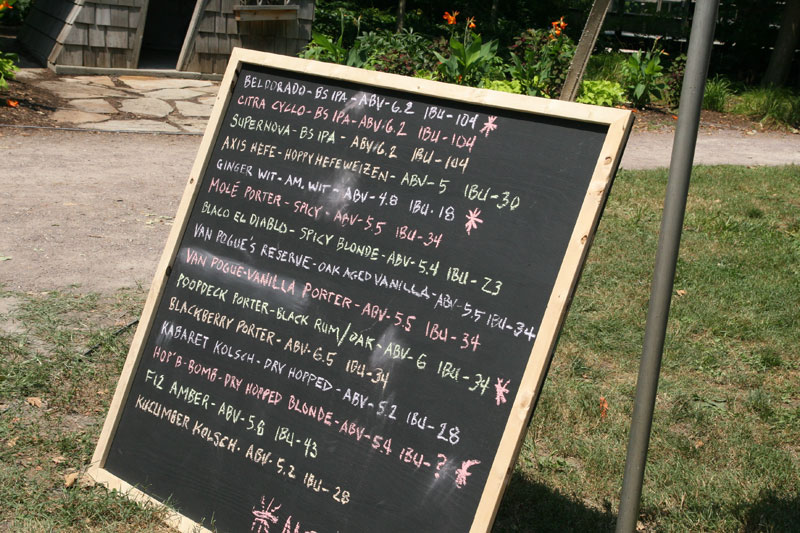 BELDORADO - BS IPA - ABV-6.2 IBU-104
CITRA CYCLO - BS IPA - ABV-6.2 IBU-104 *
SUPERNOVA - BS IPA - ABV-6.2 IBU-104
AXIS HEFE - HOPPY HEFEWEIZEN - ABV-5 IBU-30
GINGER WIT - AM. WIT - ABV-4.8 IBU-18 *
MOLÉ PORTER - SPICY - ABV-5.5 IBU-34
BLACO EL DIABLO - SPICY BLONDE - ABV-5.4 IBU-23
VAN POGUE'S RESERVE - OAK AGED VANILLA - ABV-5.5 IBU-34
VAN POGUE - VANILLA PORTER - ABV-5.5 IBU-34
POOPDECK PORTER - BLACK RUM/OAK - ABV-6 IBU-34 *
BLACKBERRY PORTER - ABV-6.5 IBU-34
KABARET KOLSCH - DRY HOPPED - ABV-5.2 IBU-28
HOP'B-BOMB - DRY HOPPED BLONDE - ABV-5.4 IBU-? *
FIZ AMBER - ABV-5.6 IBU-43
KUCUMBER KOLSCH - ABV-5.2 IBU-28
*